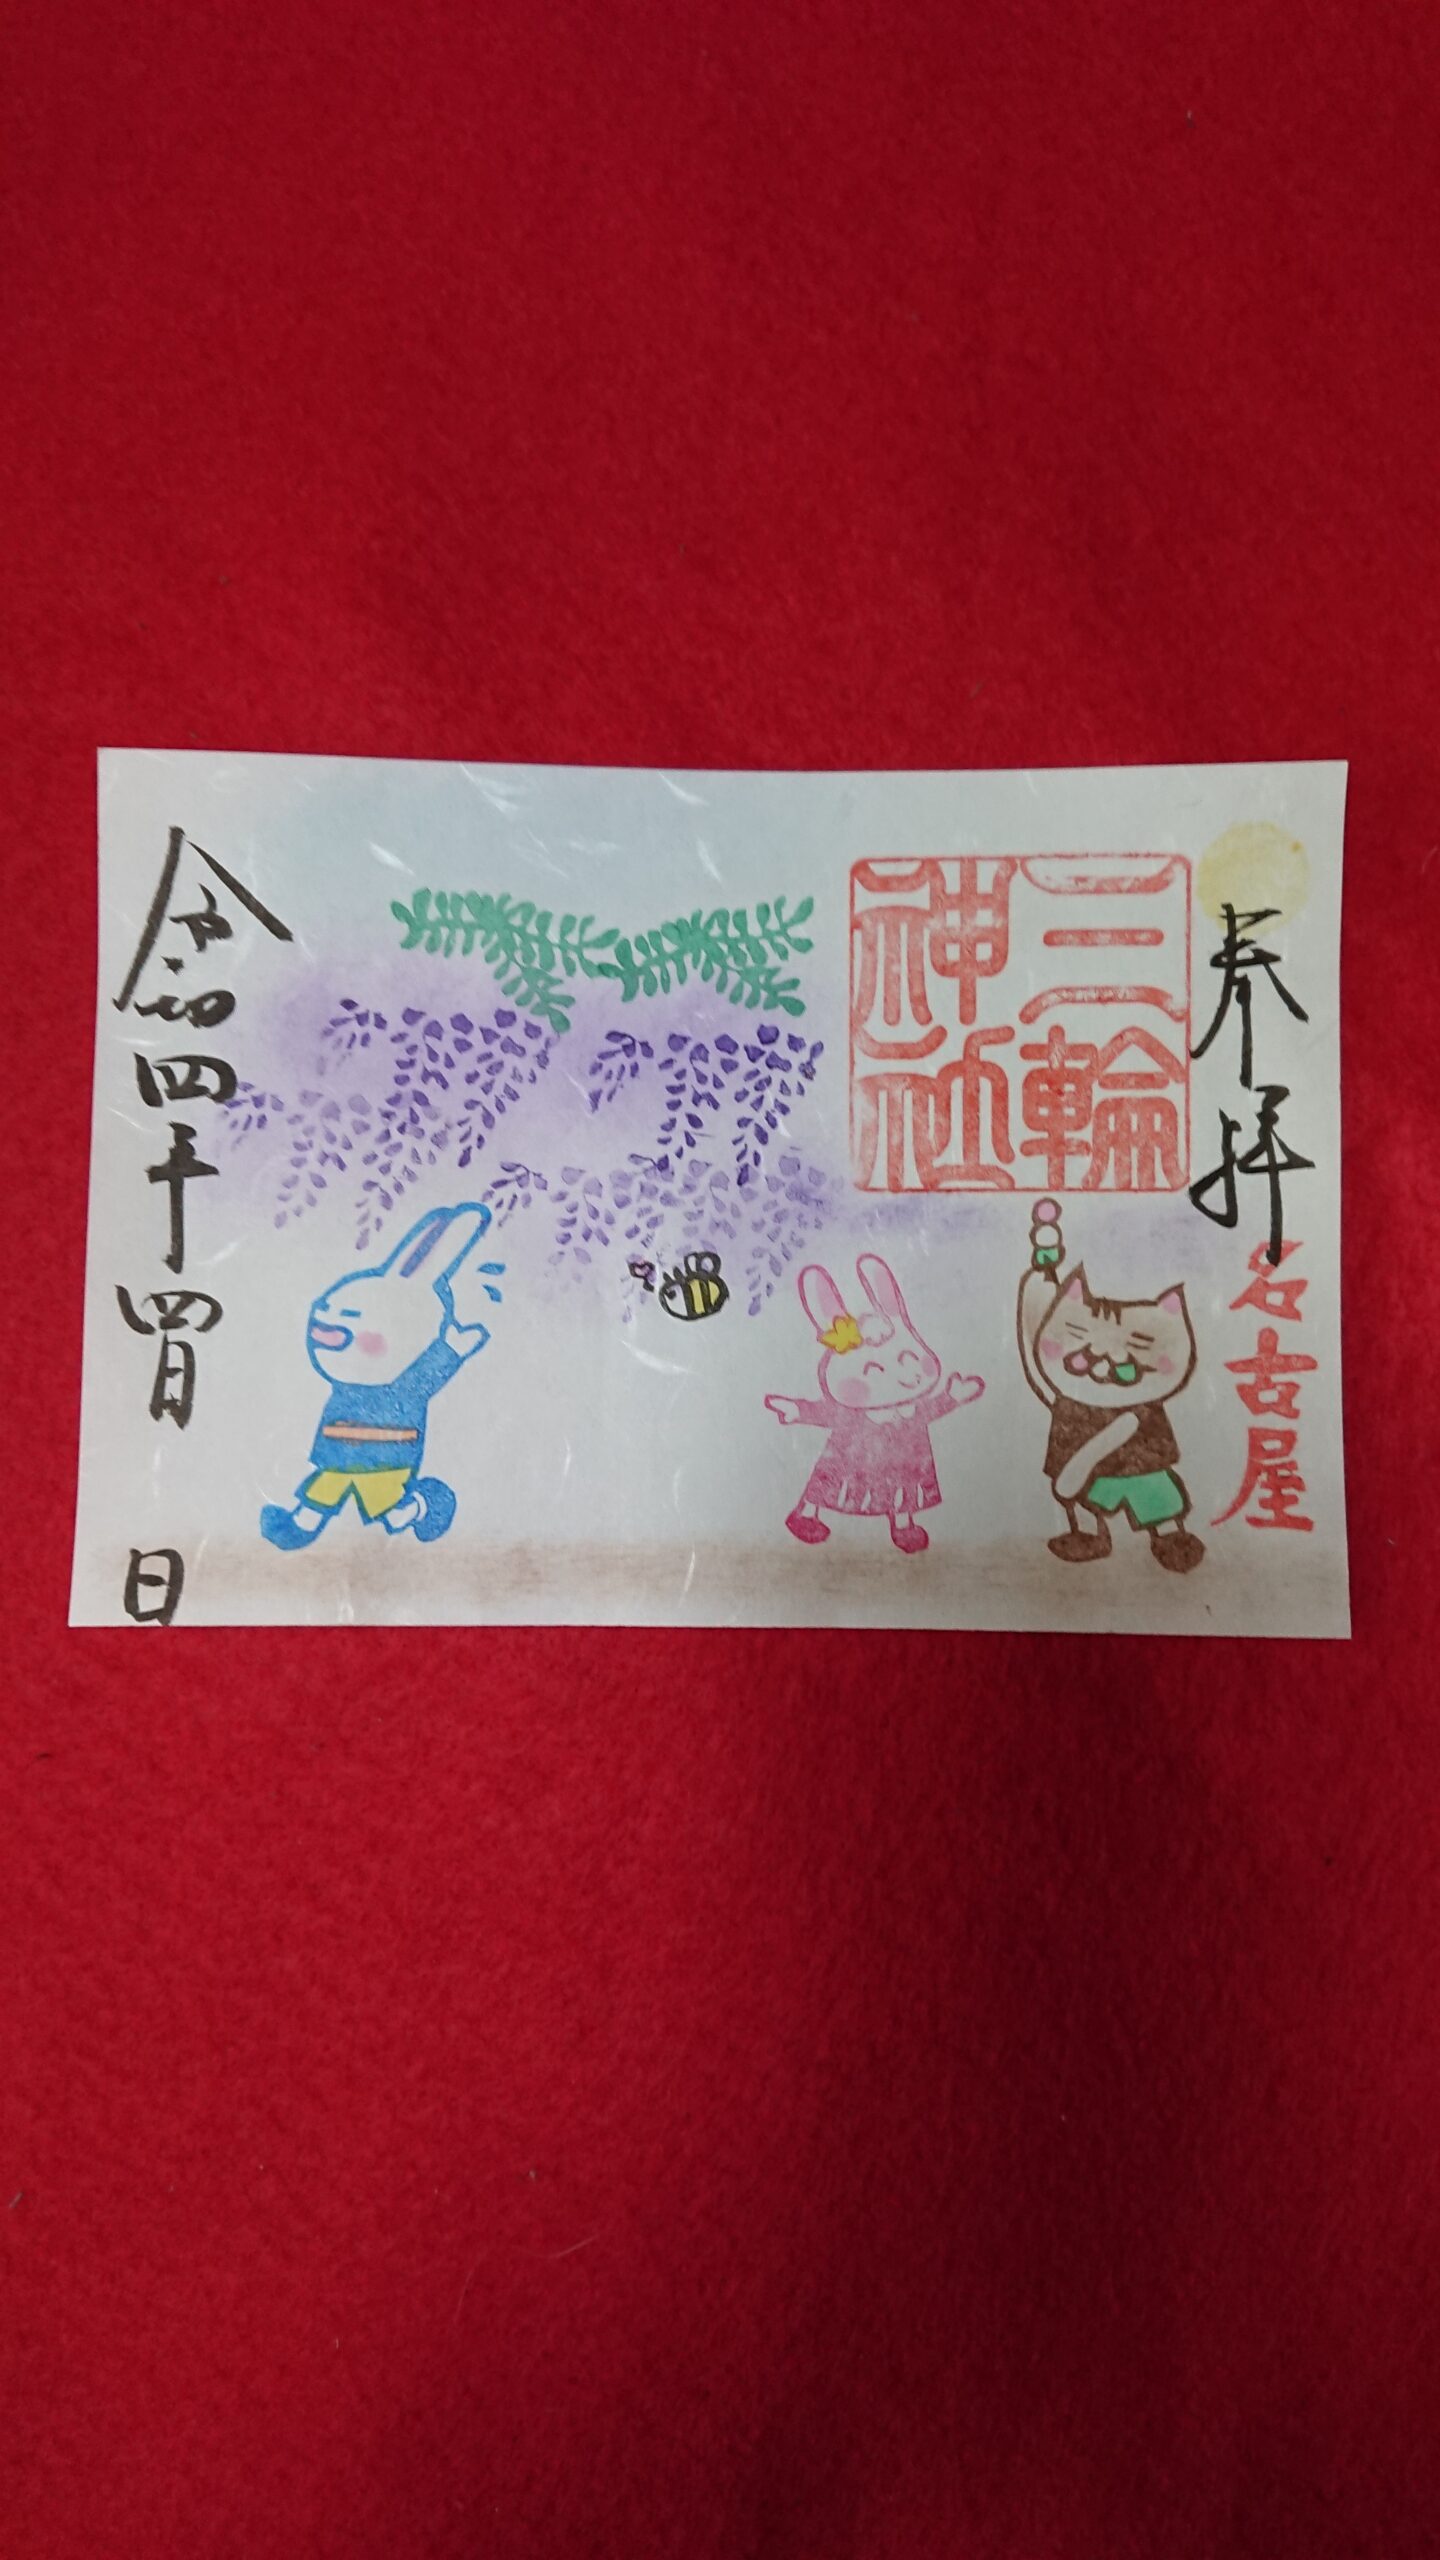 奉拝
名古屋
三輪
神社
令和四年四月 日